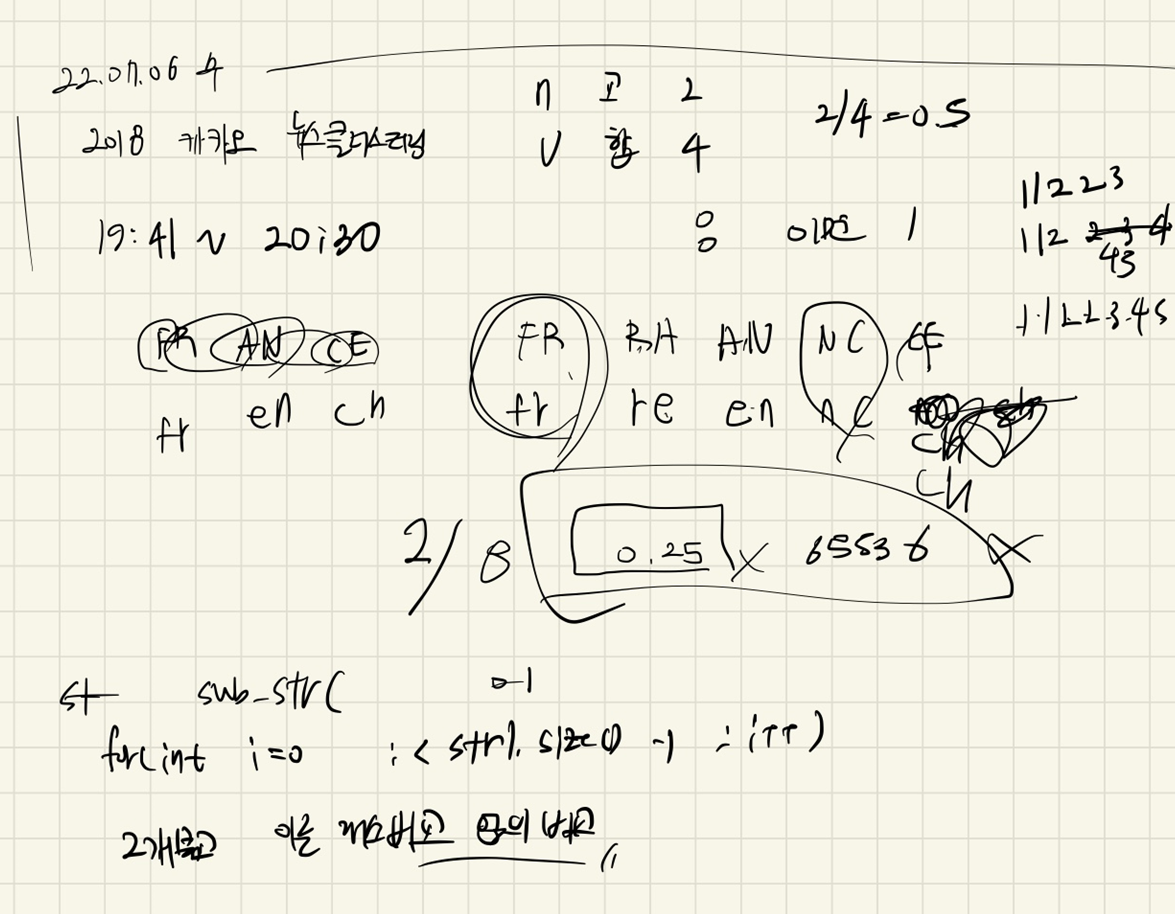 22.07.06 수
2018 카카오 뉴스클러스터링
19:41 ~ 20:30
n 교 2
U 합 4
2/4=0.5
0
0 이면 1
11223
112 2 3 4
43
1 1 2 2 3 4 5
FR AN CE
fr en ch
FR RA AN NC CE
fr re en nc
ch
ch
2/8 0.25 X 65536
st sub_str(
0-1
for(int i=0 ; i < str1.size() -1 ; i++)
2개